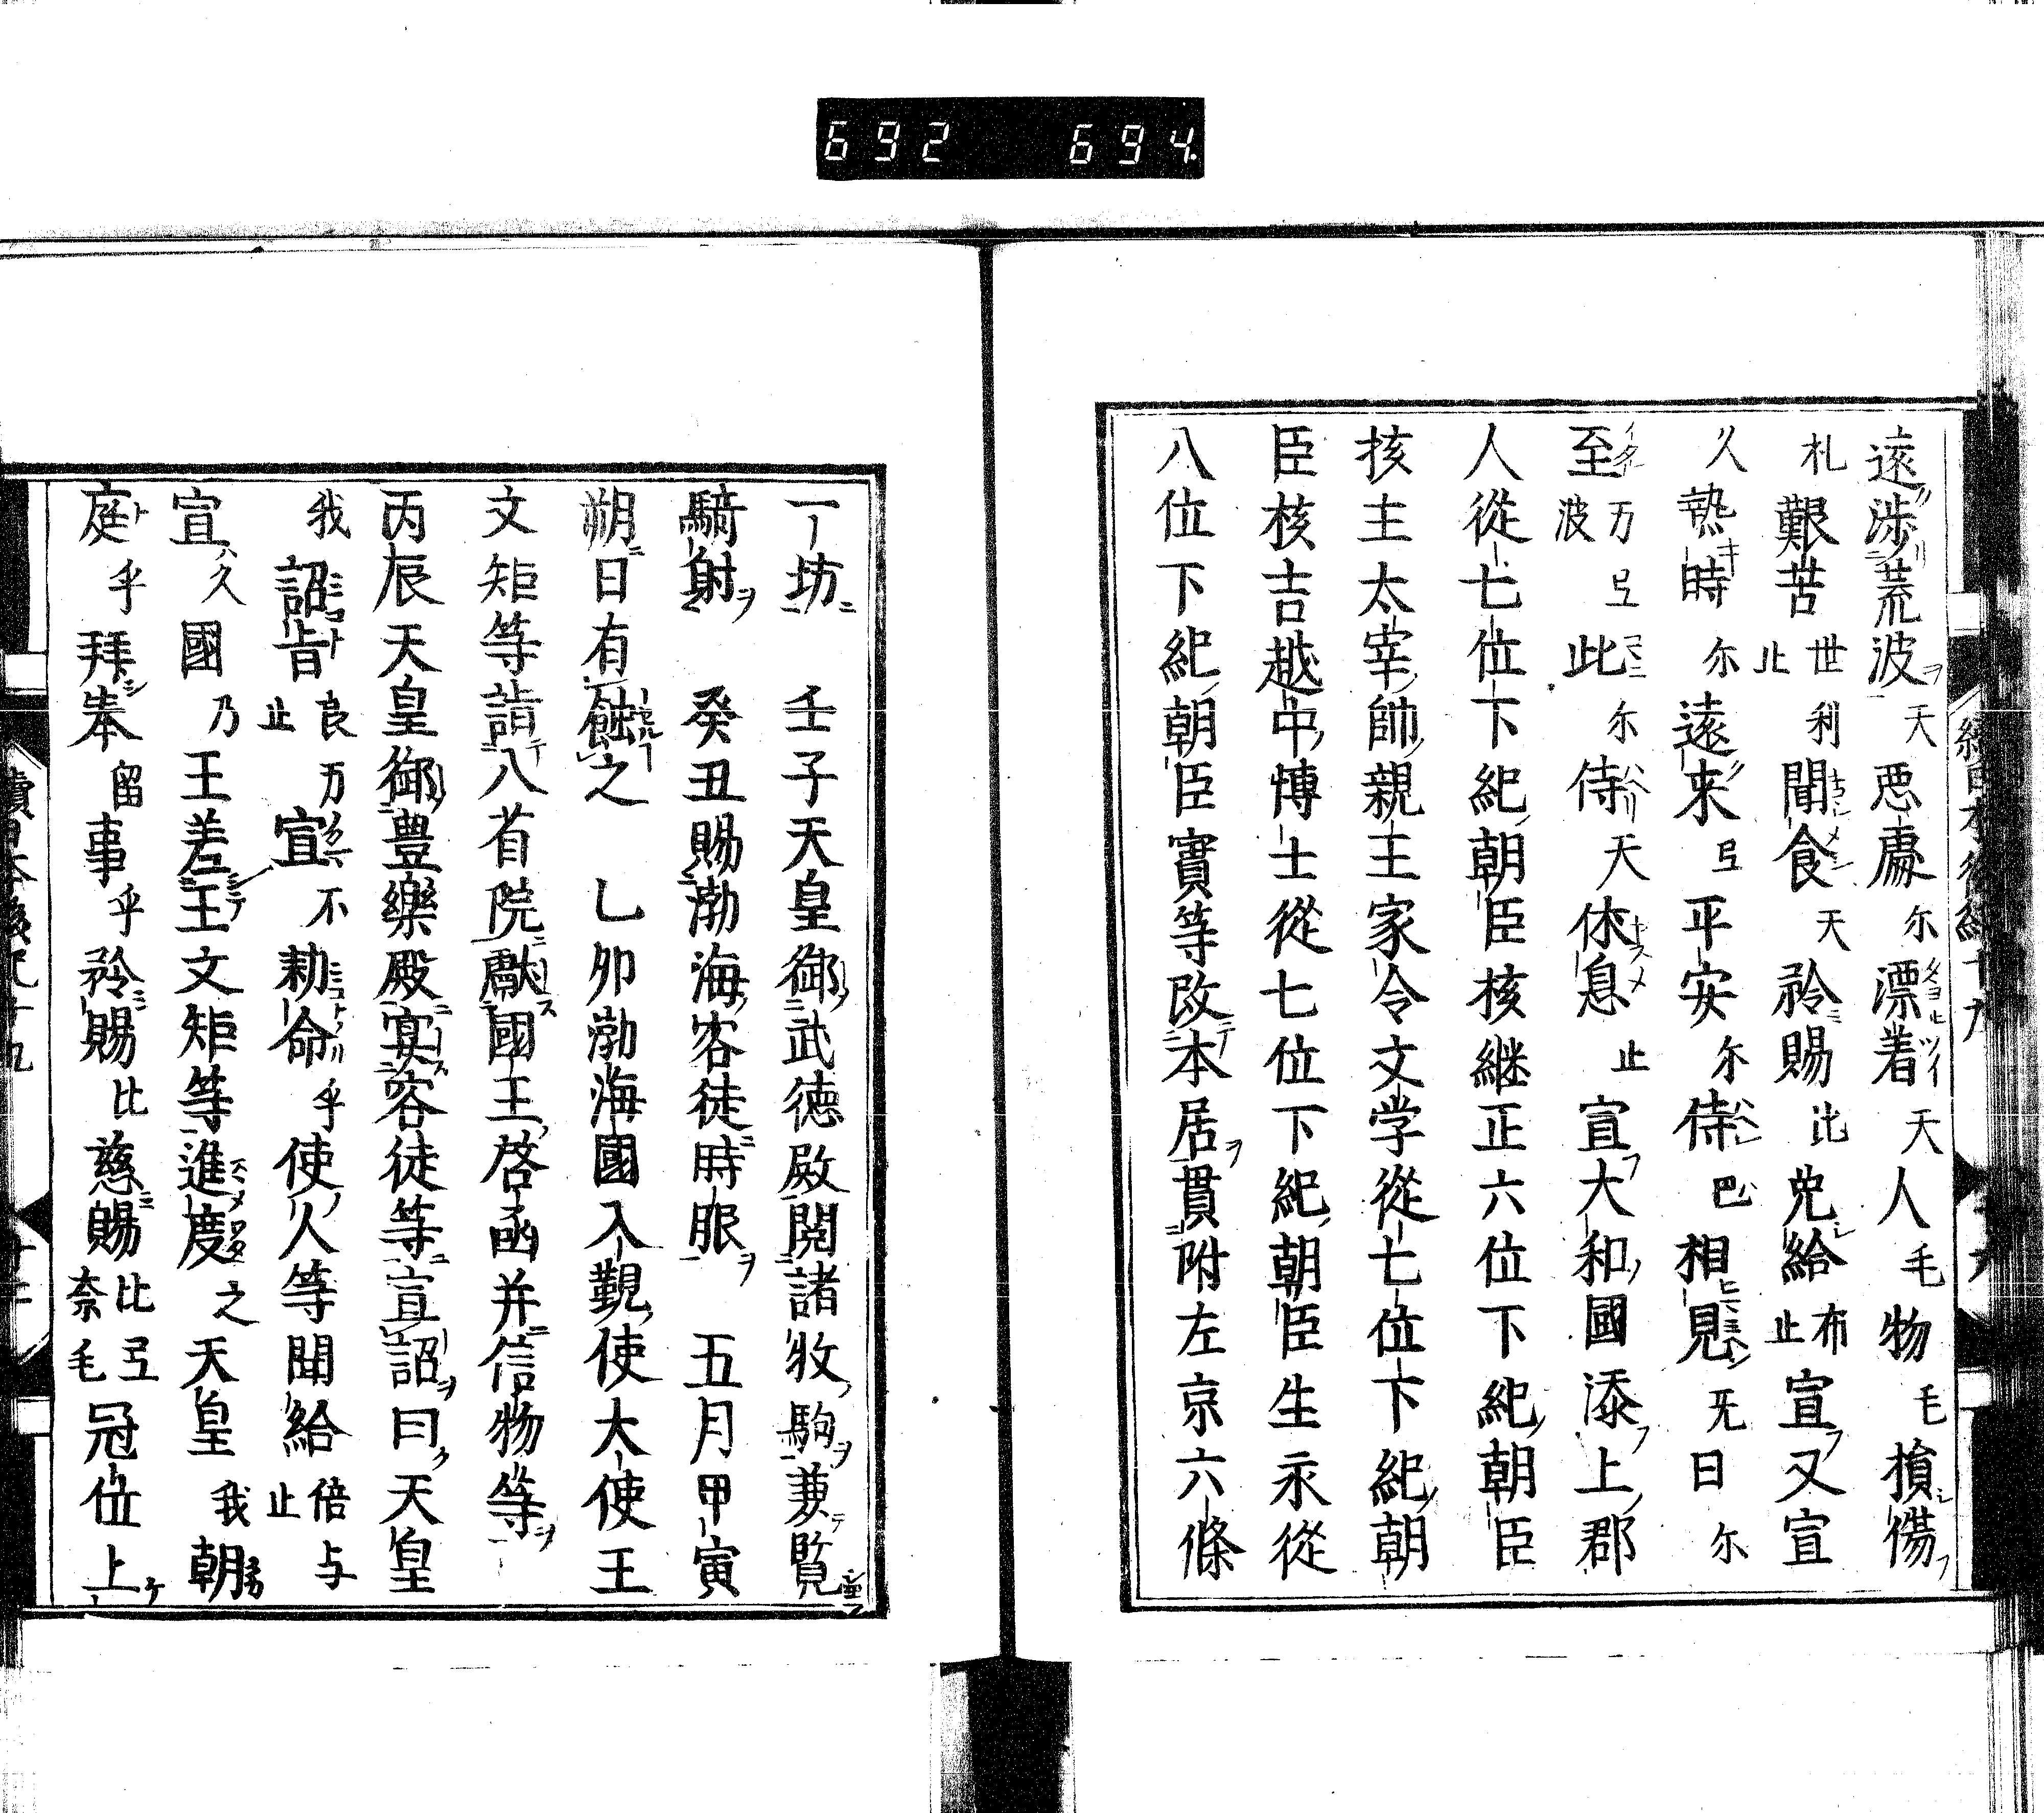 692 694
遠渉荒波天悪處尓漂着天人毛物毛損傷
礼艱苦世利止聞食天矜賜比免給布止宣又宣
久熱時尓遠来弖平安尓侍巴相見无日尓
至万波弖此尓侍天休息止宣大和國添上郡
人從七位下紀朝臣核継正六位下紀朝臣
核主太宰帥親王家令文学從七位下紀朝
臣核吉越中博士從七位下紀朝臣生永從
八位下紀朝臣實等改本居貫附左京六條
一坊　壬子天皇御武徳殿閲諸牧駒兼覧
騎射　癸丑賜渤海客徒時服　五月甲寅
朔日有蝕之　乙卯渤海國入覲使大使王
文矩等詣八省院獻國王啓函并信物等
丙辰天皇御豊樂殿宴客徒等宣詔曰天皇
我詔旨良止万宣不勅命乎使人等聞給倍止与
宣久國乃王差王文矩等進度之天皇我朝
庭乎拜奉留事乎矜賜比慈賜比奈弖毛冠位上